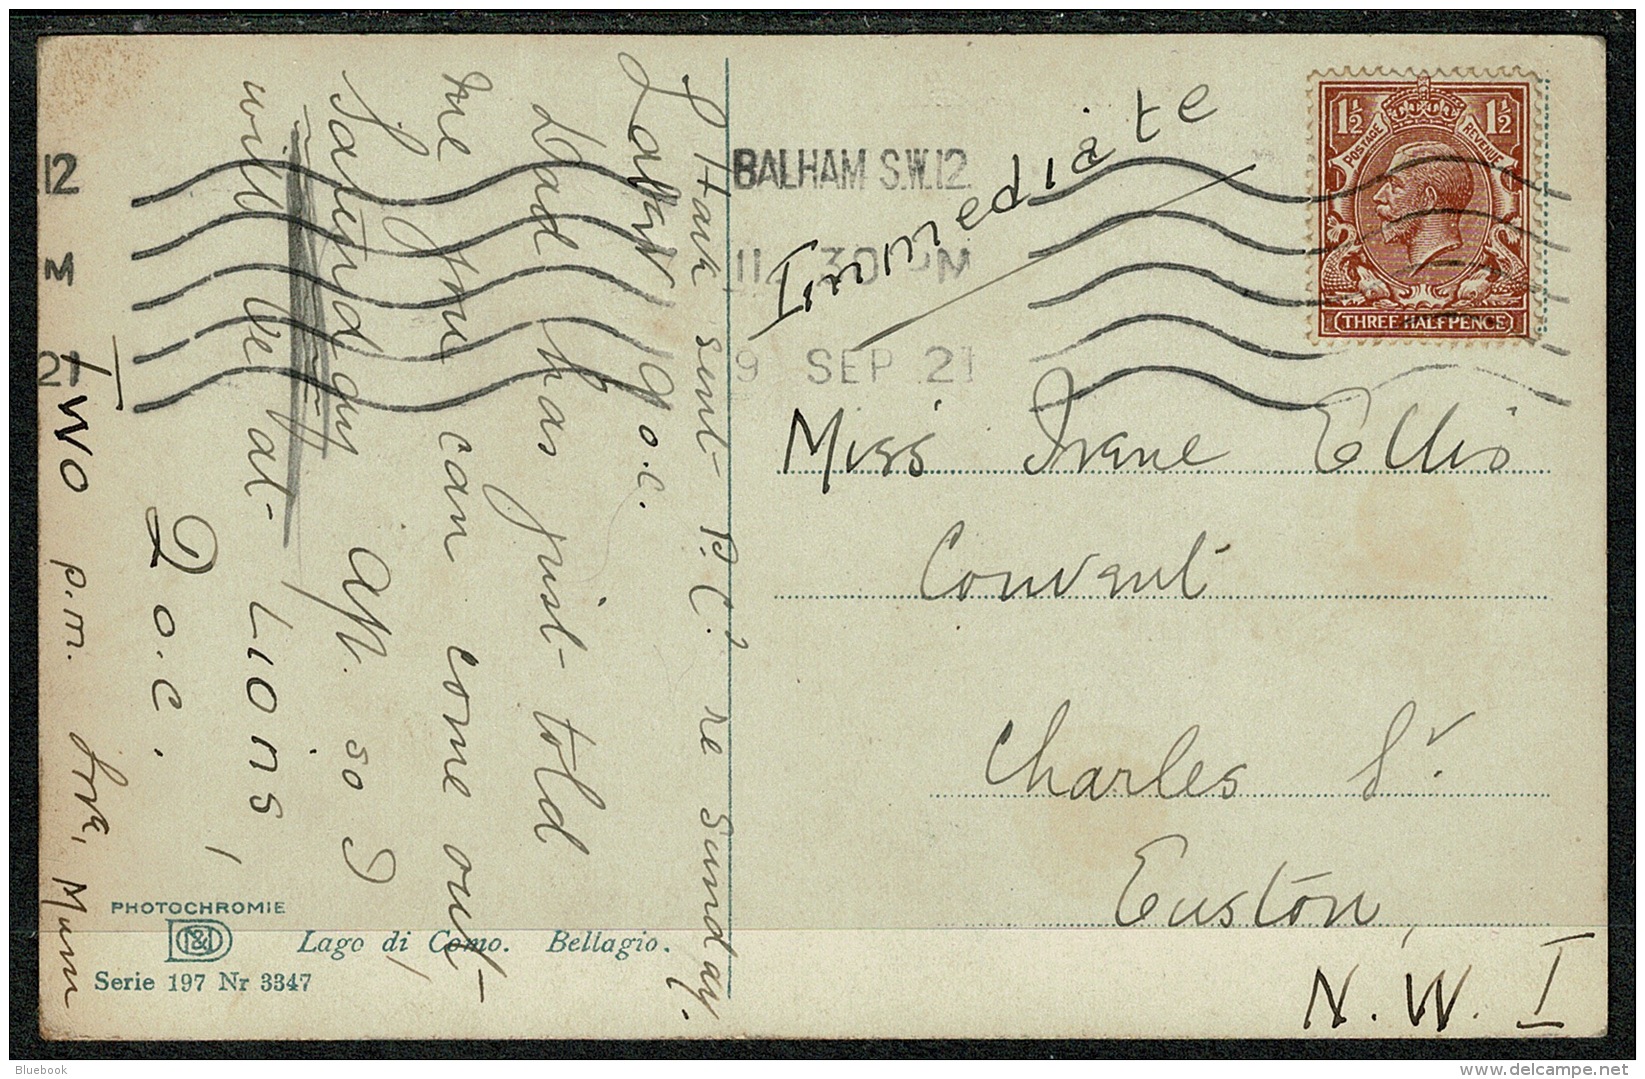 Have sent P.C. re Sunday.
9 o.c.
Dad has just told
me you can come out
Saturday aft. so I
will be at LIONS,
2 o.c.
TWO p.m. love, Mum
BALHAM S.W.12.
11 30 PM
9 SEP 21
12
M
21
Immediate
1½ 1½
POSTAGE REVENUE
THREE HALFPENCE
Miss Irene Ellis
Convent
Charles St.
Euston,
N.W. I
PHOTOCHROMIE
Lago di Como. Bellagio.
Serie 197 Nr 3347
Bluebook
delcampe.net